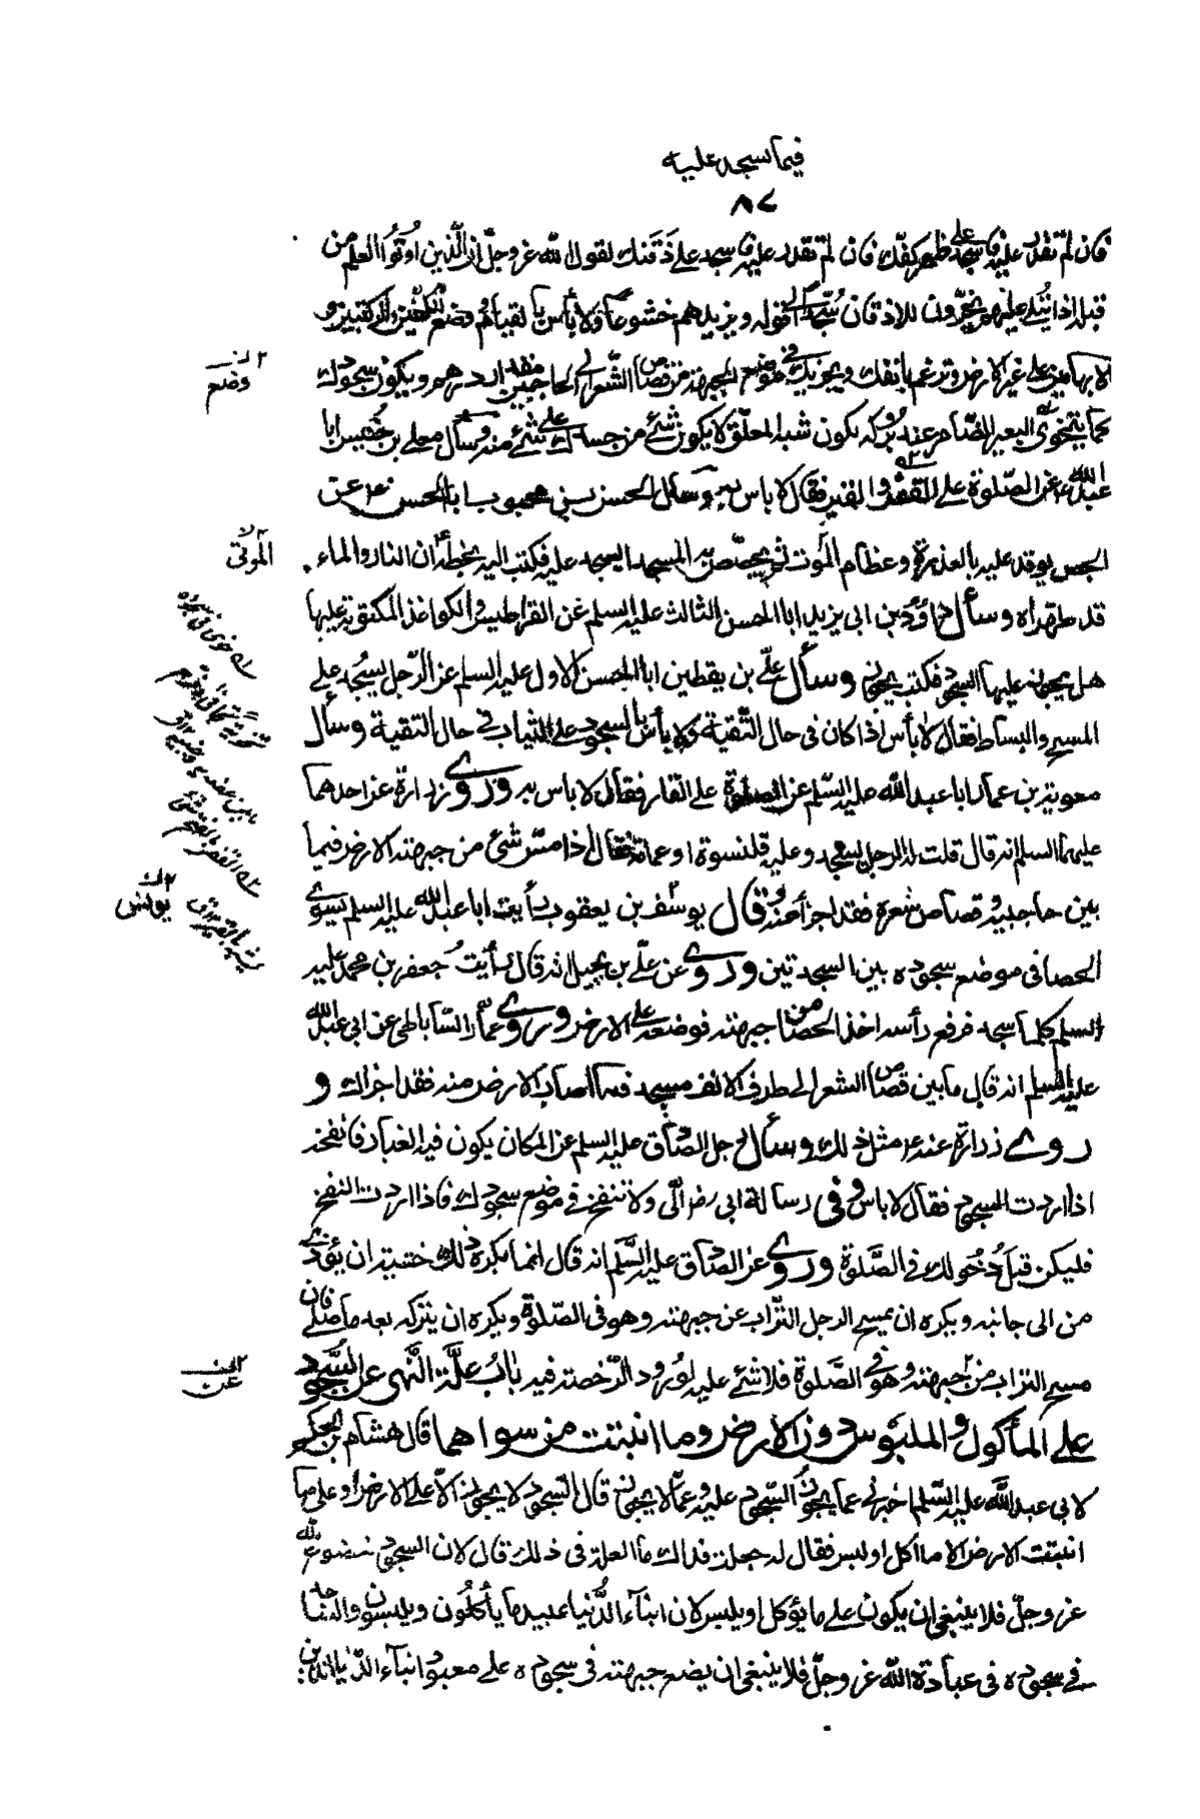 فيما يسجد عليه
٨٧
فان لم تقدر عليه فاسجد على ظهر كفّك فان لم تقدر عليه فاسجد على ذقنك لقول الله عزوجلّ ان الّذين اوتُوا العلم من
قبله اذا يُتلى عليهم يخرّون للاذقان سُجّدا الى قوله ويزيدهم خشوعا ولا بأس بالقيام ووضع الكفّين والركبتين و
الابهامين على غير الارض وترغم بانفك ويجزيك في موضع الجبهة من قصاص الشّعر الى الحاجبين مقدار درهم ويكون سجودك
كما يتخوّى البعير الضّامر عند بروكه يكون شبه المعلّق لا يكون شئ من جسدك على شئ منه وسأل معلى بن خُنيس ابا
عبد الله ع عن الصّلوة على القفر والقير فقال لا باس به وسأل الحسن بن محبوب ابا الحسن ع عن
الجص يوقد عليه بالعذرة وعظام الموت ثم يجصّص به المسجد ايسجد عليه فكتب اليه بخطه ان النار والماء
قد طهراه وسأل داود بن ابى يزيد ابا الحسن الثالث عليه السلم عن القراطيس والكواغذ المكتوبة عليها
هل يجوز عليها السجود فكتب يجوز وسأل علىّ بن يقطين ابا الحسن الاول عليه السلم عن الرّجل يسجد على
المسح والبساط فقال لا بأس اذا كان فى حال التّقية ولا بأس بالسجود على الثياب في حال التقية وسأل
معوية بن عمار ابا عبد الله عليه السّلم عن الصلوة على القار فقال لا باس به وروى زرارة عن احدهما
عليهما السلم انه قال قلت له الرجل يسجد وعليه قلنسوة او عمامة فقال اذا مسّ شئ من جبهته الارض فيما
بين حاجبيه وقصاص شعره فقد اجزأ عنه وقال يوسف بن يعقوب رأيت ابا عبد الله عليه السلم يسوى
الحصا فى موضع سجوده بين السجدتين وروى عن علىّ بن بجيل انه قال رأيت جعفر بن محمد عليه
السلم كلما سجد فرفع رأسه اخذ الحصا من جبهته فوضعه على الارض وروى عمّار السّاباطى عن ابى عبد الله
عليه السلم انه قال ما بين قصاص الشعر الى طرف الانف مسجد فما اصاب الارض منه فقد اجزاك و
روى زرارة عنه ع مثل ذلك وسأل رجل الصّادق عليه السلم عن المكان يكون فيه الغبار فانفخه
اذا اردت السجود فقال لا باس وفى رسالة ابى رض الىّ ولا تنفخ فى موضع سجودك فاذا اردت النفخ
فليكن قبل دُخولك فى الصّلوة وروى عن الصّادق عليه السّلم انه قال انما يكره ذلك خشية ان يؤذى
من الى جانبه ويكره ان يمسح الرجل التّراب عن جبهته وهو فى الصّلوة ويكره ان يتركه بعد ما صلى فان
مسح التراب من جبهته وهو فى الصّلوة فلا شئ عليه لورود الرّخصة فيه بابُ علّة النّهى عن السّجود
على المأكول والملبوس دون الارض وما انبتت من سواهما قال هشام بن الحكم
لابى عبد الله عليه السّلم اخبرنى عما يجوز السّجود عليه وعمّا لا يجوز قال السّجود لا يجوز الاّ على الارض او على ما
انبتت الارض الا ما اكل او لبس فقال له جعلت فداك ما العلة فى ذلك قال لان السجود خضوع لله
عزوجلّ فلا ينبغى ان يكون على ما يؤكل او يلبس لان ابنآء الدُّنيا عبيد ما يأكلون ويلبسون والساجد
فى سجوده فى عبادة الله عزوجلّ فلا ينبغى ان يضع جبهته فى سجوده على معبود ابنآء الدّنيا الذين
وضع
الموتى
يونس
عن